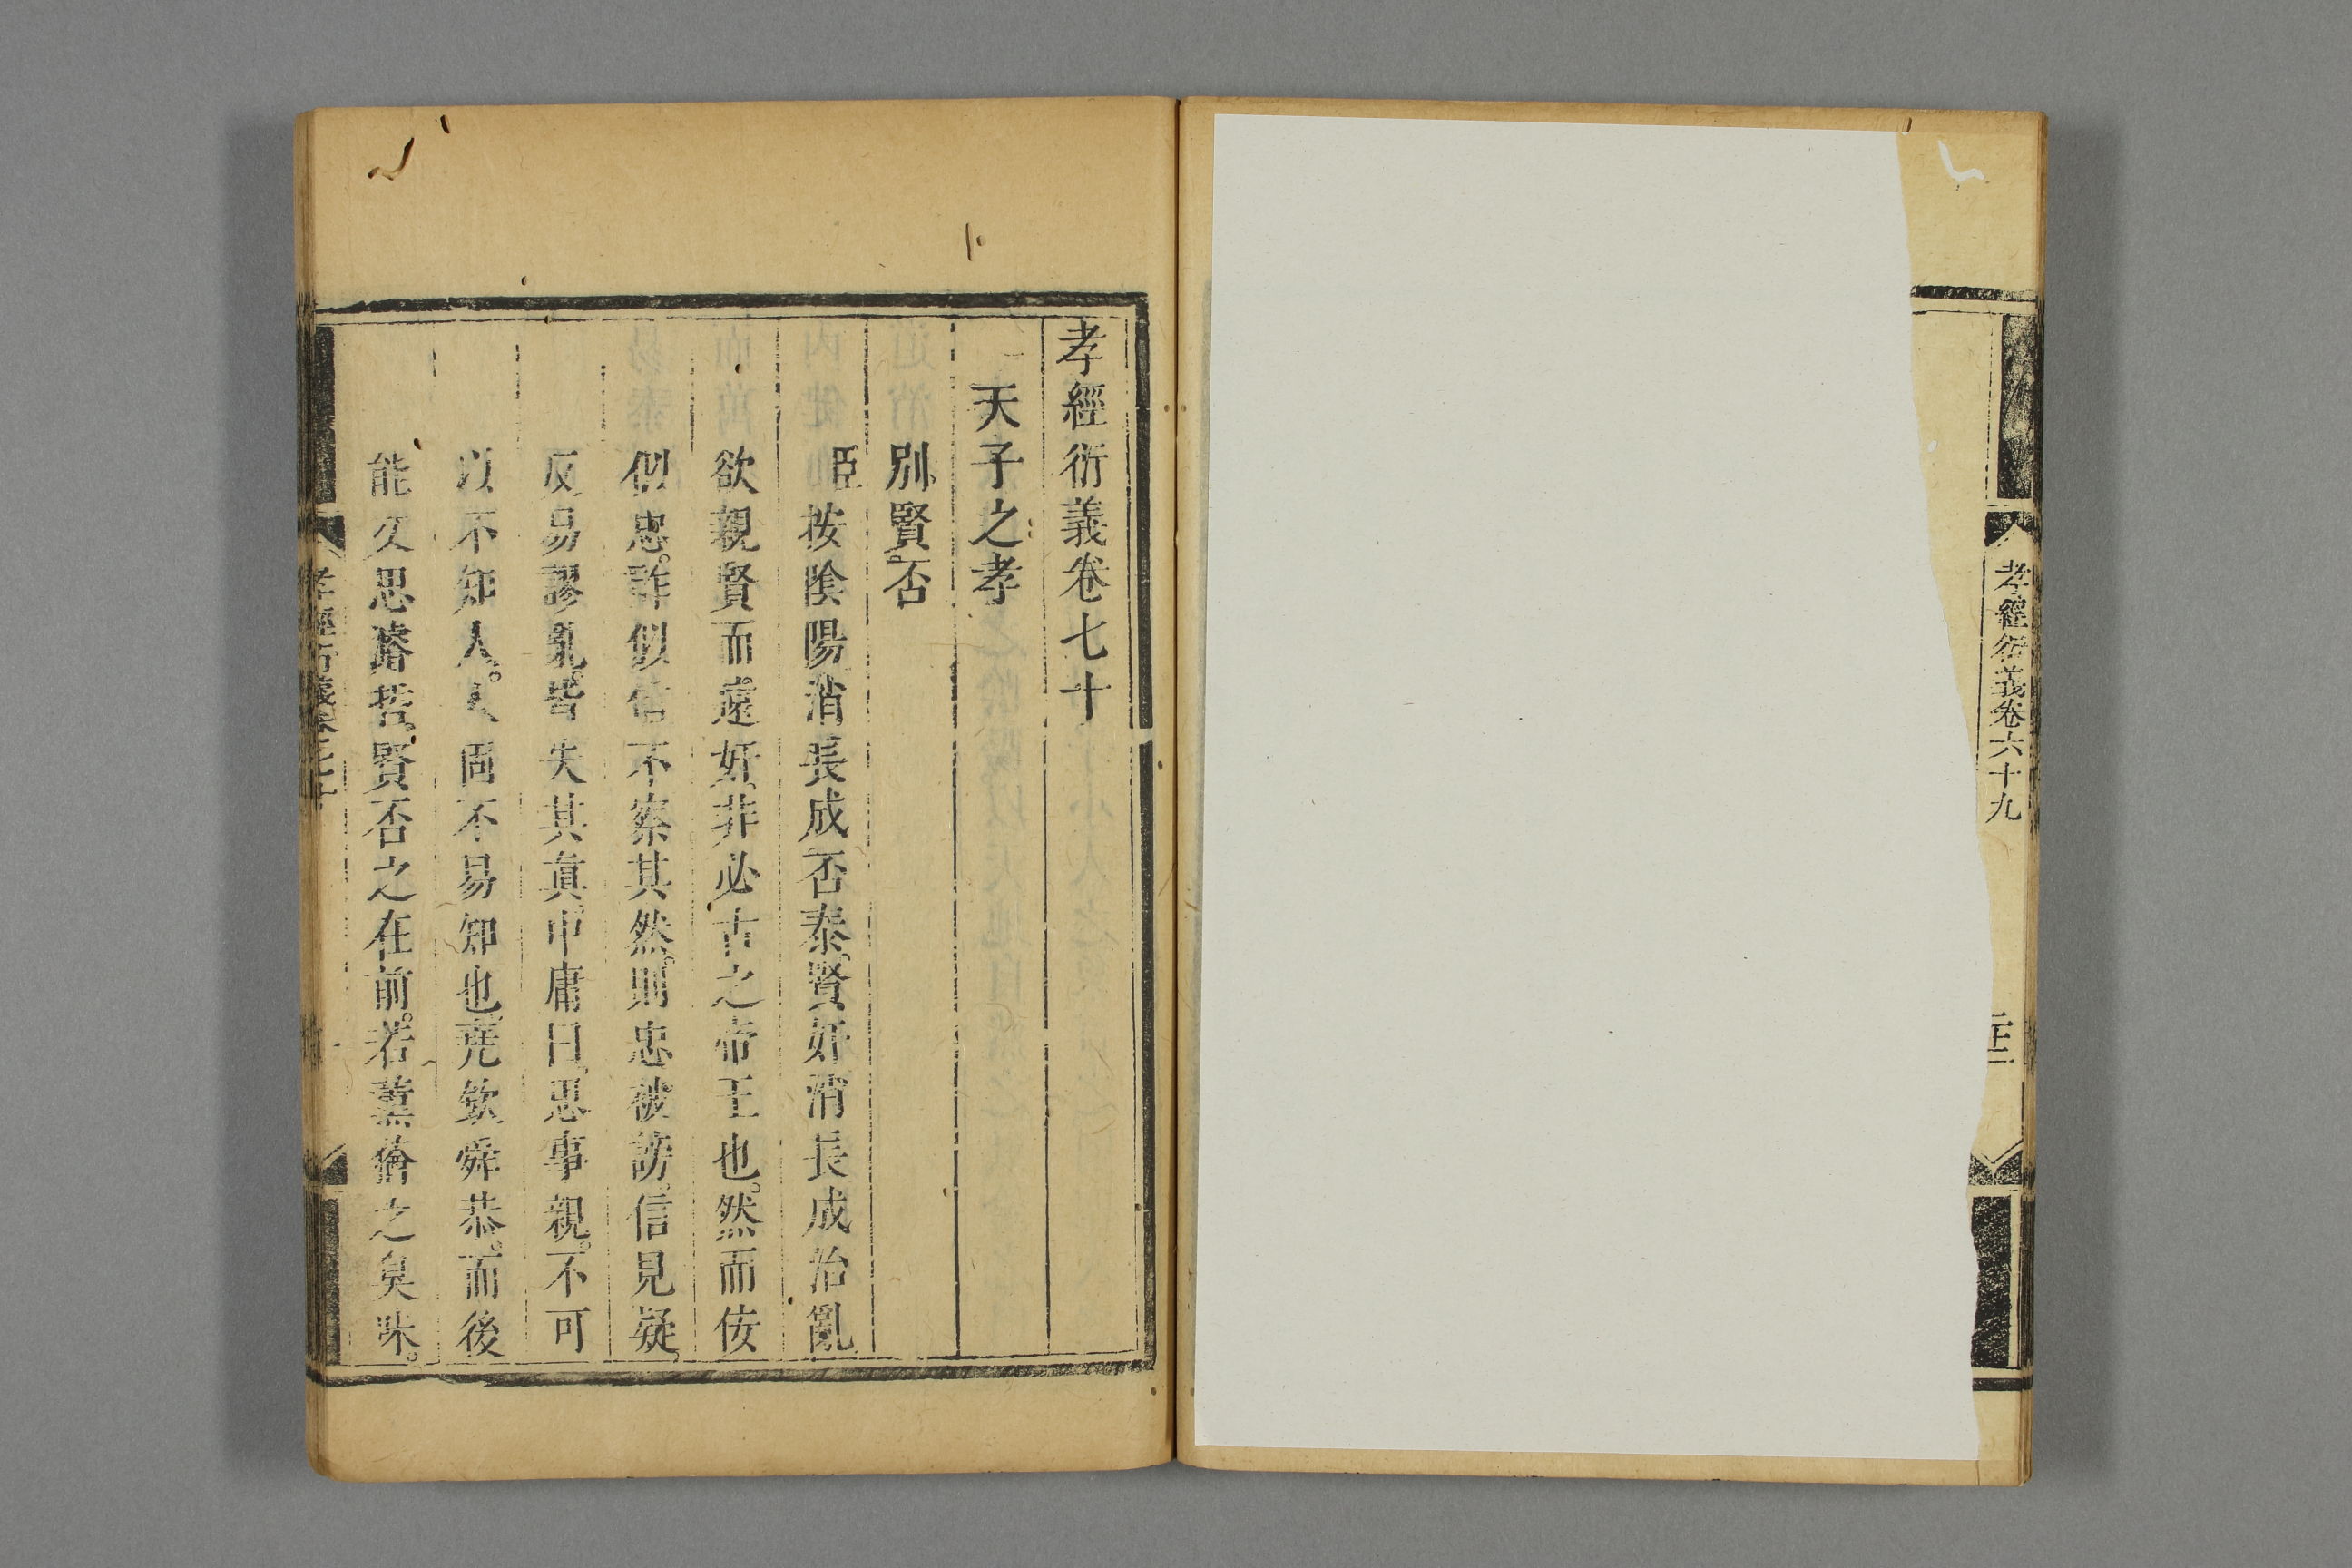 孝經衍義卷六十九
孝經衍義卷七十
天子之孝
別賢否
臣按陰陽消長成否泰。賢奸消長成治亂
欲親賢而遠奸。非必古之帝王也。然而佞
似忠。詐似信。不察其然。則忠被謗。信見疑。
反易謬亂。皆失其真。中庸曰。思事親。不可
以不知人。人固不易知也。堯欽舜恭。而後
能久思濬哲。賢否之在前。若薰蕕之臭味。
孝經衍義卷七十